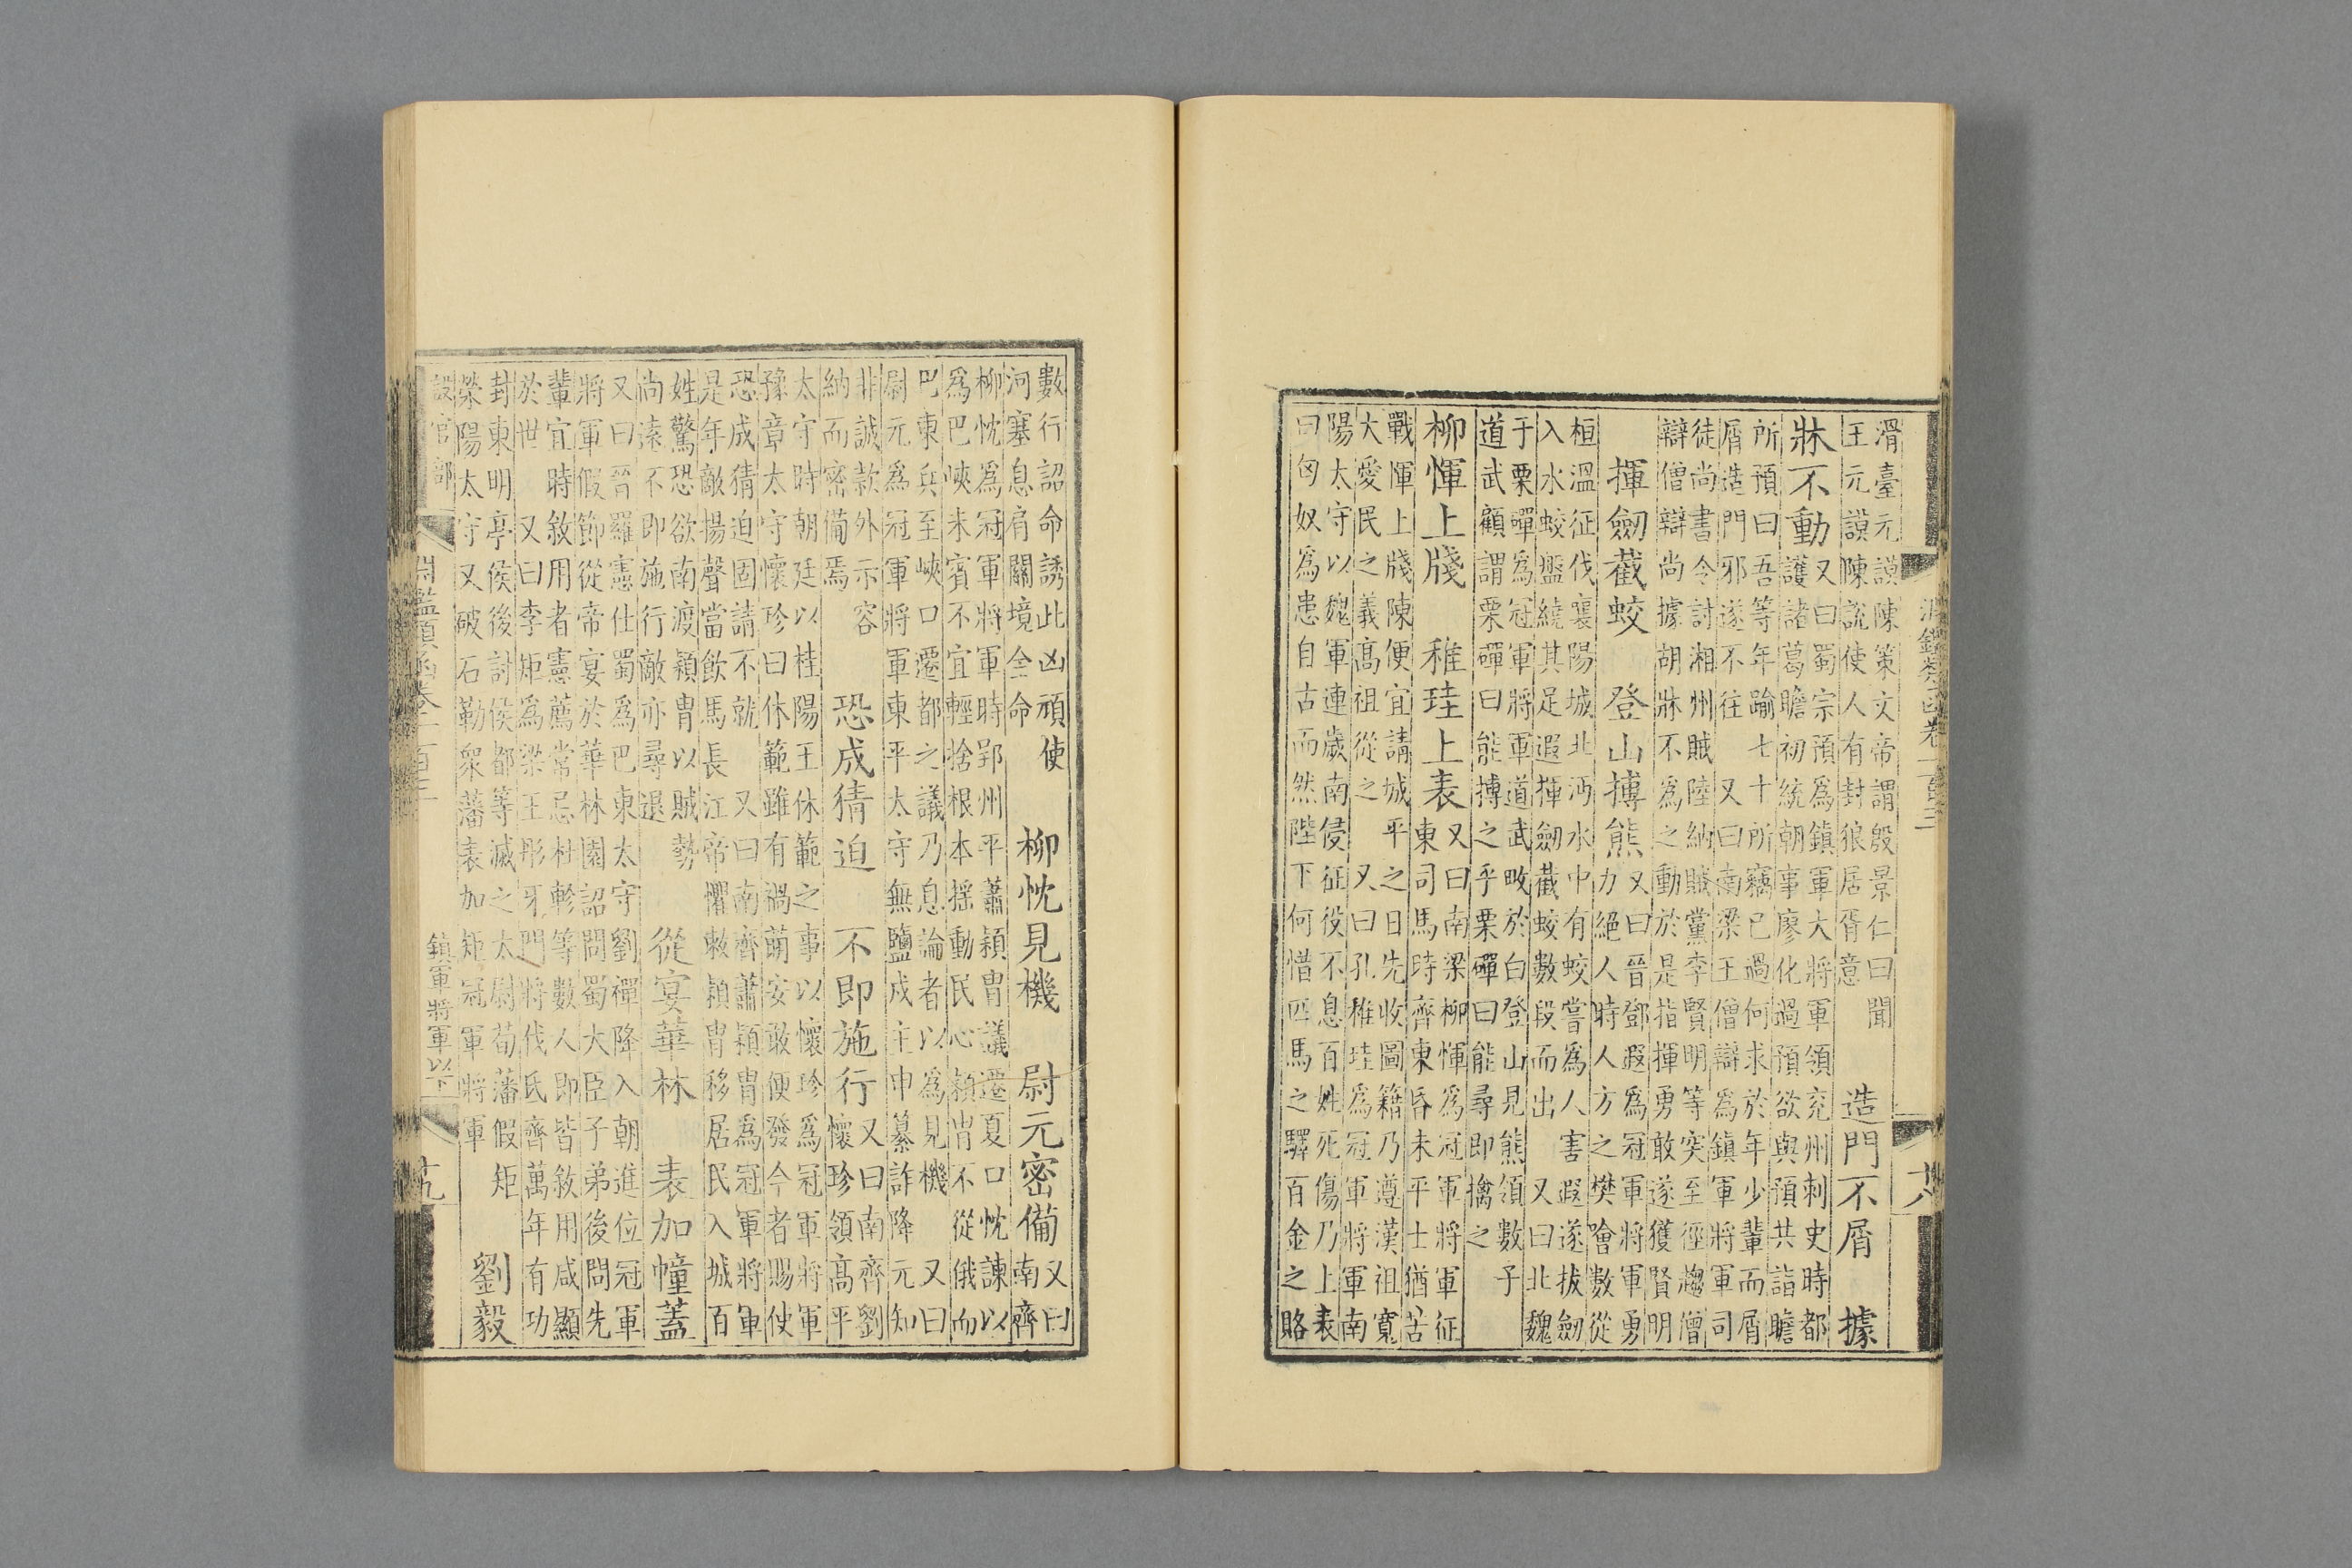 淵鑑類函卷一百三　十八
滑臺元謨陳策文帝謂殷景仁曰聞
王元謨陳說使人有封狼居胥意
造門不屑　據
牀不動
又曰蜀宗預為鎮軍大將軍領兗州刺史時都
護諸葛瞻初統朝事廖化過預欲與預共詣瞻
所預曰吾等年踰七十所竊已過何求於年少輩而屑
屑造門邪遂不往　又曰南梁王僧辯為鎮軍將軍司
徒尚書令討湘州賊陸納賊黨李賢明等突至徑趨僧
辯僧辯尚據胡牀不為之動於是指揮勇敢遂獲賢明
揮劒截蛟　登山搏熊
又曰晉鄧遐為冠軍將軍勇
力絕人時人方之樊噲數從
桓溫征伐襄陽城北沔水中有蛟嘗為人害遐遂拔劒
入水蛟盤繞其足遐揮劒截蛟數段而出　又曰北魏
于栗磾為冠軍將軍道武畋於白登山見熊領數子
道武顧謂栗磾曰能搏之乎栗磾曰能尋即擒之
柳惲上牋　稚珪上表
又曰南梁柳惲為冠軍將軍征
東司馬時齊東昏未平士猶苦
戰惲上牋陳便宜請城平之日先收圖籍乃遵漢祖寬
大愛民之義高祖從之　又曰孔稚珪為冠軍將軍南
陽太守以魏軍連歲南侵征役不息百姓死傷乃上表
曰匈奴為患自古而然陛下何惜匹馬之驛百金之賂
數行詔命誘此凶頑使
河塞息肩關境全命
柳忱見機　尉元密備
又曰
南齊
柳忱為冠軍將軍時郢州平蕭穎胄議遷夏口忱諫以
為巴峽未賓不宜輕捨根本搖動民心穎冑不從俄而
巴東兵至峽口遷都之議乃息論者以為見機　又曰
尉元為冠軍將軍東平太守無鹽戍主申纂詐降元知
非誠款外示容
納而密備焉
恐成猜迫　不即施行
又曰南齊劉
懷珍領高平
太守時朝廷以桂陽王休範之事以懷珍為冠軍將軍
豫章太守懷珍曰休範雖有禍萌安敢便發今者賜使
恐成猜迫固請不就　又曰南齊蕭穎胄為冠軍將軍
是年敵揚聲當飲馬長江帝懼敕穎胄移居民入城百
姓驚恐欲南渡穎冑以賊勢
尚遠不即施行敵亦尋退
從宴華林　表加幢蓋
又曰晉羅憲仕蜀為巴東太守劉禪降入朝進位冠軍
將軍假節從帝宴於華林園詔問蜀大臣子弟後問先
輩宜時敘用者憲薦常忌杜軫等數人即皆敘用咸顯
於世　又曰李矩為梁王彤牙門將伐氐齊萬年有功
封東明亭侯後討侯都等滅之太尉荀藩假矩
滎陽太守又破石勒眾藩表加矩冠軍將軍
劉毅
設官部　淵鑑類函卷一百三　鎮軍將軍以下　十九